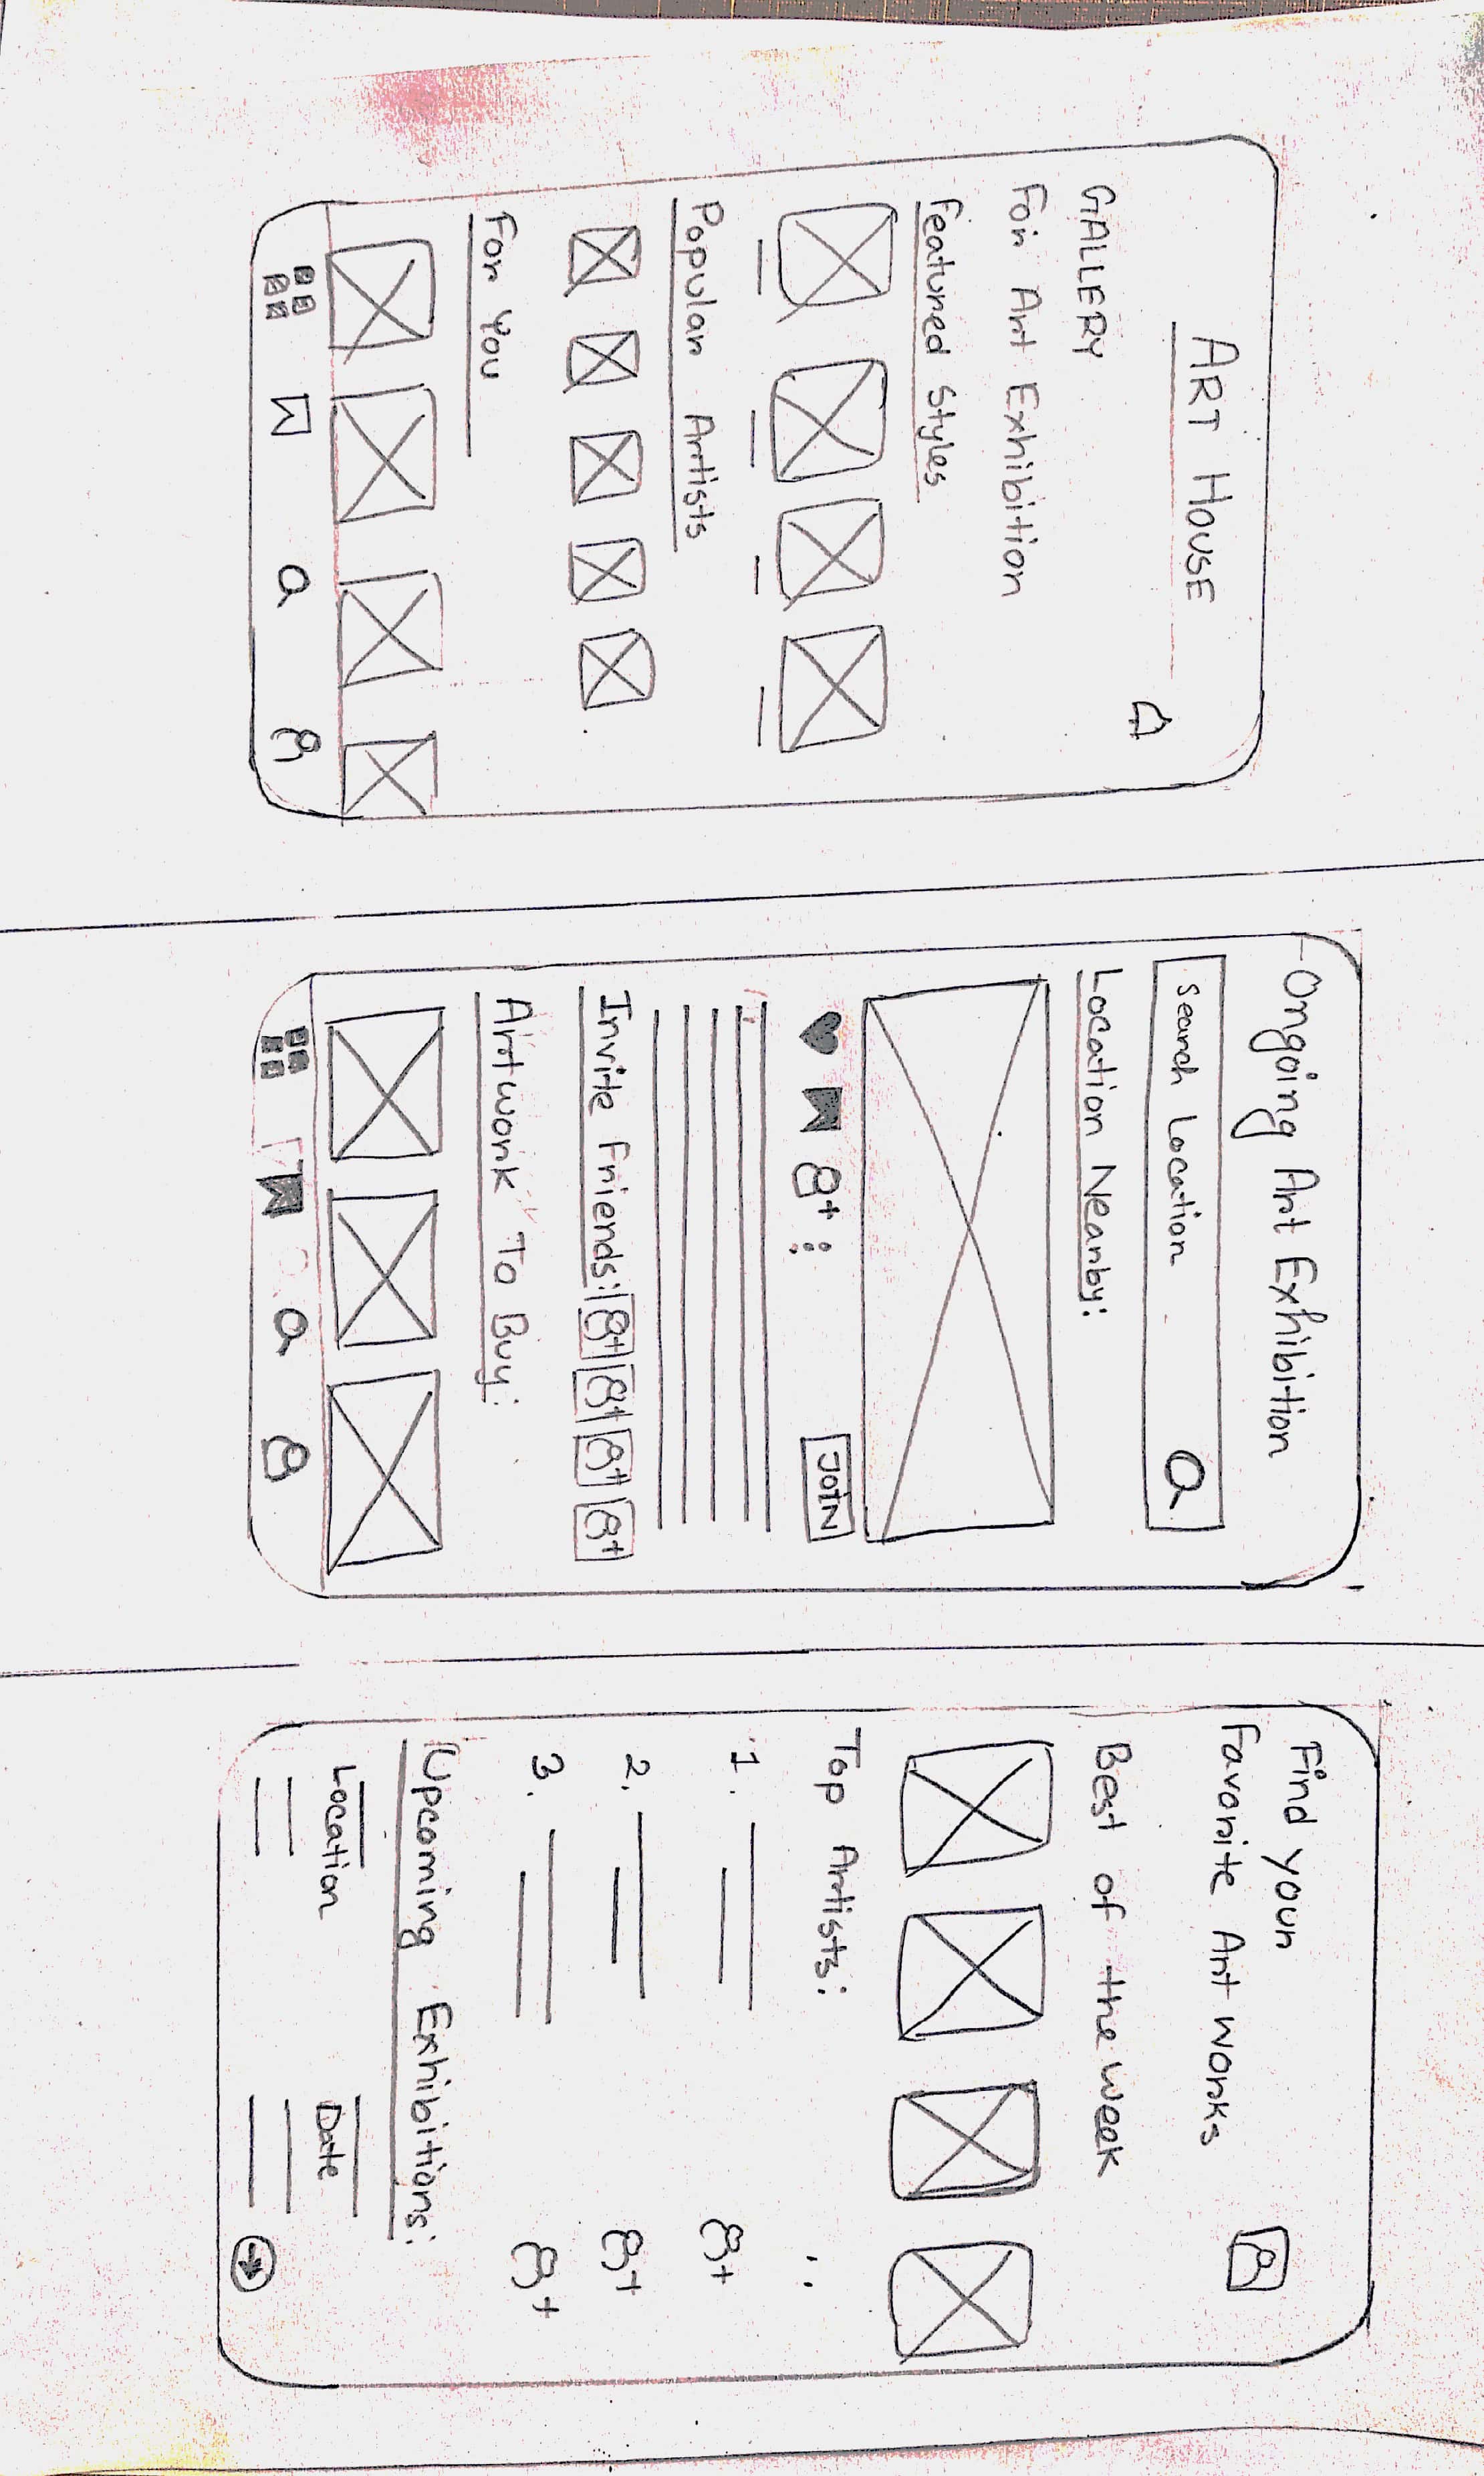 ART HOUSE
GALLERY
For Art Exhibition
Featured Styles
Popular Artists
For You
Ongoing Art Exhibition
Search Location
Location Nearby:
JOIN
Invite Friends:
Artwork To Buy:
Find your
Favorite Art works
Best of the week
Top Artists:
1.
2.
3.
Upcoming Exhibitions:
Location
Date